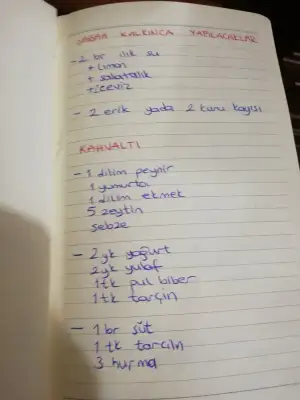 SABAH KALKINCA YAPILACAKLAR
- 2 br ılık su
+ Limon
+ salatalık
+ ceviz
- 2 erik yada 2 kuru kayısı
KAHVALTI
- 1 dilim peynir
1 yumurta
1 dilim ekmek
5 zeytin
sebze
- 2 yk yoğurt
2 yk yulaf
1 tk pul biber
1 tk tarçın
- 1 br süt
1 tk tarçın
3 hurma